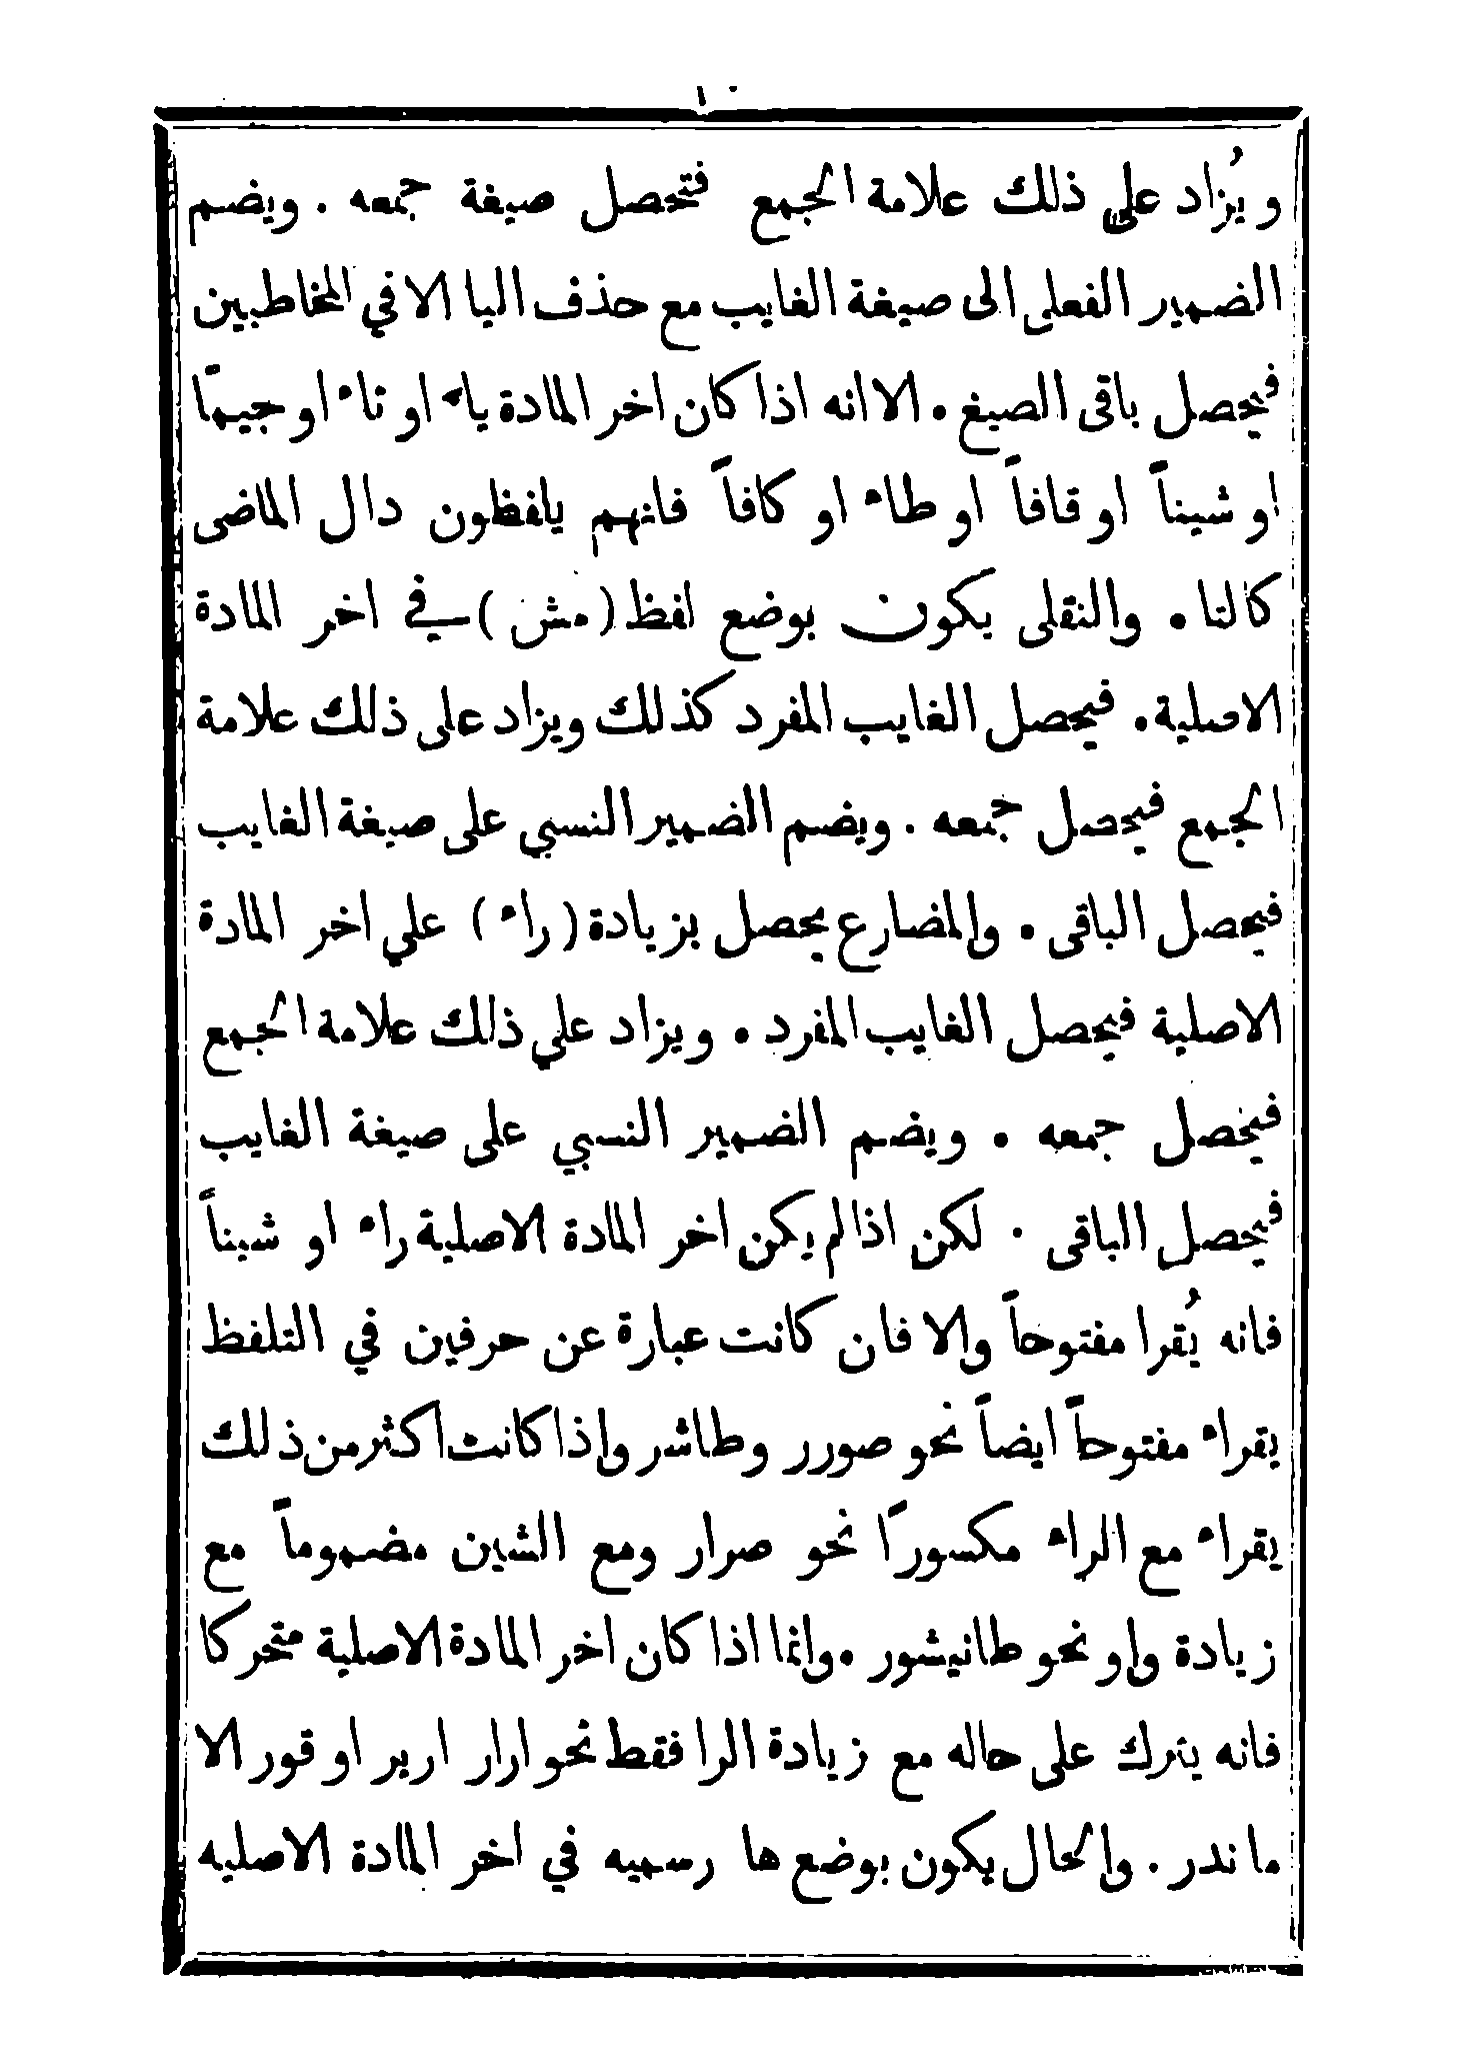 ١٠
ويُزاد على ذلك علامة الجمع فتحصل صيغة جمعه . ويضم
الضمير الفعلى الى صيغة الغايب مع حذف اليا الا في المخاطبين
فيحصل باقى الصيغ . الا انه اذا كان اخر المادة باء او تاء او جيمًا
او شيناً او قافاً او طاء او كافاً فانهم يلفظون دال الماضى
كالتا . والنقلى يكون بوضع لفظ ( مش ) في اخر المادة
الاصلية . فيحصل الغايب المفرد كذلك ويزاد على ذلك علامة
الجمع فيحصل جمعه . ويضم الضمير النسبي على صيغة الغايب
فيحصل الباقى . والمضارع يحصل بزيادة ( راء ) علي اخر المادة
الاصلية فيحصل الغايب المفرد . ويزاد علي ذلك علامة الجمع
فيحصل جمعه . ويضم الضمير النسبي على صيغة الغايب
فيحصل الباقى . لكن اذا لم يكن اخر المادة الاصلية راء او شيناً
فانه يُقرا مفتوحاً والا فان كانت عبارة عن حرفين في التلفظ
يقراء مفتوحاً ايضاً نحو صورر وطاشر واذا كانت اكثر من ذلك
يقراء مع الراء مكسورًا نحو صرار ومع الشين مضموماً مع
زيادة واو نحو طانيشور . وانما اذا كان اخر المادة الاصلية متحركا
فانه يترك على حاله مع زيادة الرا فقط نحو ارار ارير او قور الا
ما ندر . والحال يكون بوضع ها رسميه في اخر المادة الاصليه